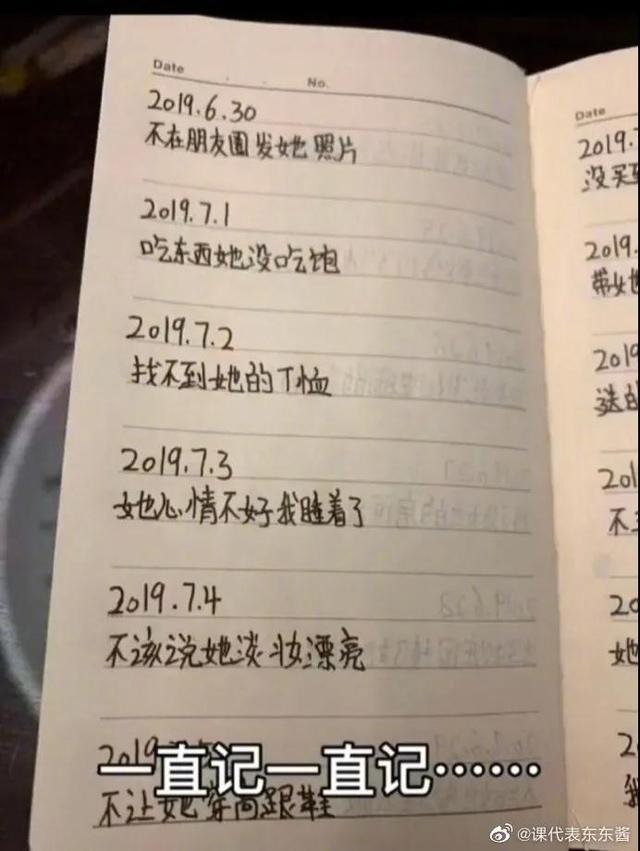 Date . . No.
2019.6.30
不在朋友圈发她照片
2019.7.1
吃东西她没吃饱
2019.7.2
找不到她的T恤
2019.7.3
她心情不好我睡着了
2019.7.4
不该说她淡妆漂亮
2019
一直记一直记……
不让她穿高跟鞋
Date
2019.
没买
2019.
带她
2019
送的
20
不
20
她
2
@课代表东东酱